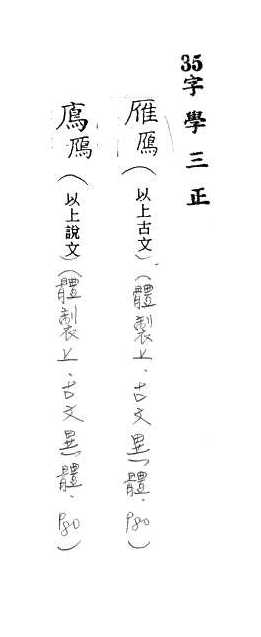 35字學三正
雁鴈(以上古文)(體製上.古文異體.P80)
鴈(以上說文)(體製上.古文異體.P80)